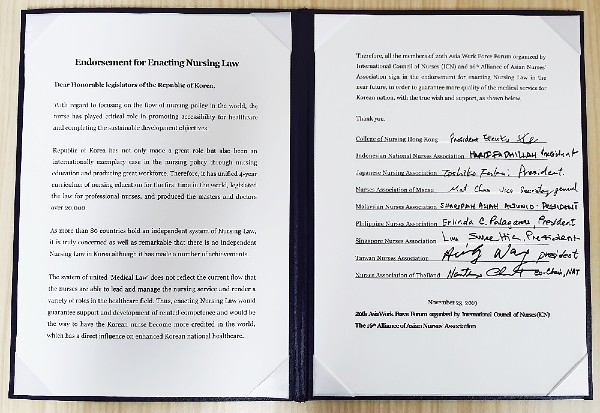 Endorsement for Enacting Nursing Law
Dear Honorable legislators of the Republic of Korea.
With regard to focusing on the flow of nursing policy in the world, the
nurse has played critical role in promoting accessibility for healthcare
and completing the sustainable development objectives.
Republic of Korea has not only made a great role but also been an
internationally exemplary case in the nursing policy through nursing
education and producing great workforce. Therefore, it has unified 4-year
curriculum of nursing education for the first time in the world, legislated
the law for professional nurses, and produced the masters and doctors
over 20,000.
As more than 80 countries hold an independent system of Nursing Law,
it is truly concerned as well as remarkable that there is no independent
Nursing Law in Korea although it has made a number of achievements.
The system of united 'Medical Law' does not reflect the current flow that
the nurses are able to lead and manage the nursing service and render a
variety of roles in the healthcare field. Thus, enacting Nursing Law would
guarantee support and development of related competence and would be
the way to have the Korean nurse become more credited in the world,
which has a direct influence on enhanced Korean national healthcare.
Therefore, all the members of 20th Asia Work Force Forum organized by
International Council of Nurses (ICN) and 16th Alliance of Asian Nurses'
Association sign in the endorsement for enacting Nursing Law in the
near future, in order to guarantee more quality of the medical service for
Korean nation, with the true wish and support, as shown below.
Thank you.
College of Nursing Hong Kong President
Indonesian National Nurses Association President
Japanese Nursing Association Toshiko President.
Nurses Association of Macau Mat Chao Vice Secretary general
Malaysian Nurses Association PRESIDENT
Philippine Nurses Association Erlinda C. Palaganas, President
Singapore Nurses Association Lim Swee Hia, President
Taiwan Nurses Association President
Nurses Association of Thailand Co-Chair, NAT
November 23, 2019
20th Asia Work Force Forum organized by International Council of Nurses(ICN)
The 16th Alliance of Asian Nurses' Association